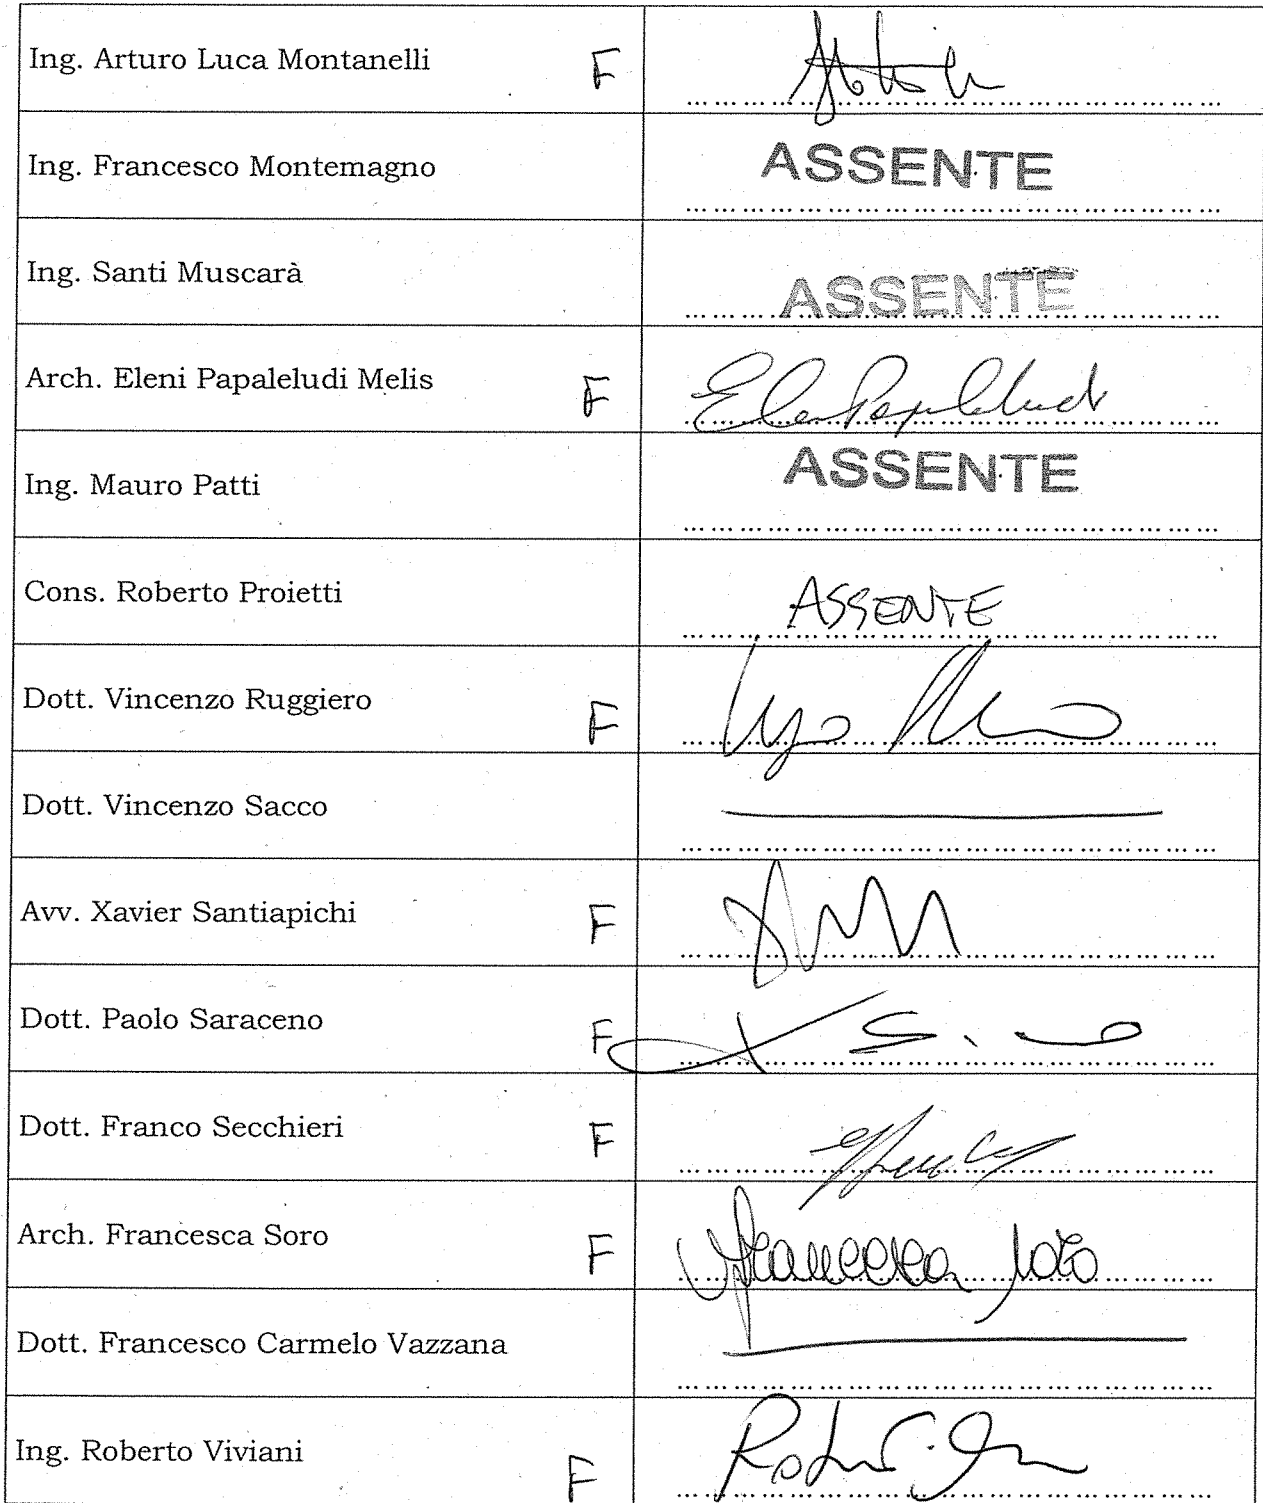 Ing. Arturo Luca Montanelli F
Ing. Francesco Montemagno ASSENTE
Ing. Santi Muscarà ASSENTE
Arch. Eleni Papaleludi Melis F Eleni Papaleludi
Ing. Mauro Patti ASSENTE
Cons. Roberto Proietti ASSENTE
Dott. Vincenzo Ruggiero F
Dott. Vincenzo Sacco
Avv. Xavier Santiapichi F
Dott. Paolo Saraceno F
Dott. Franco Secchieri F
Arch. Francesca Soro F Francesca Soro
Dott. Francesco Carmelo Vazzana
Ing. Roberto Viviani F